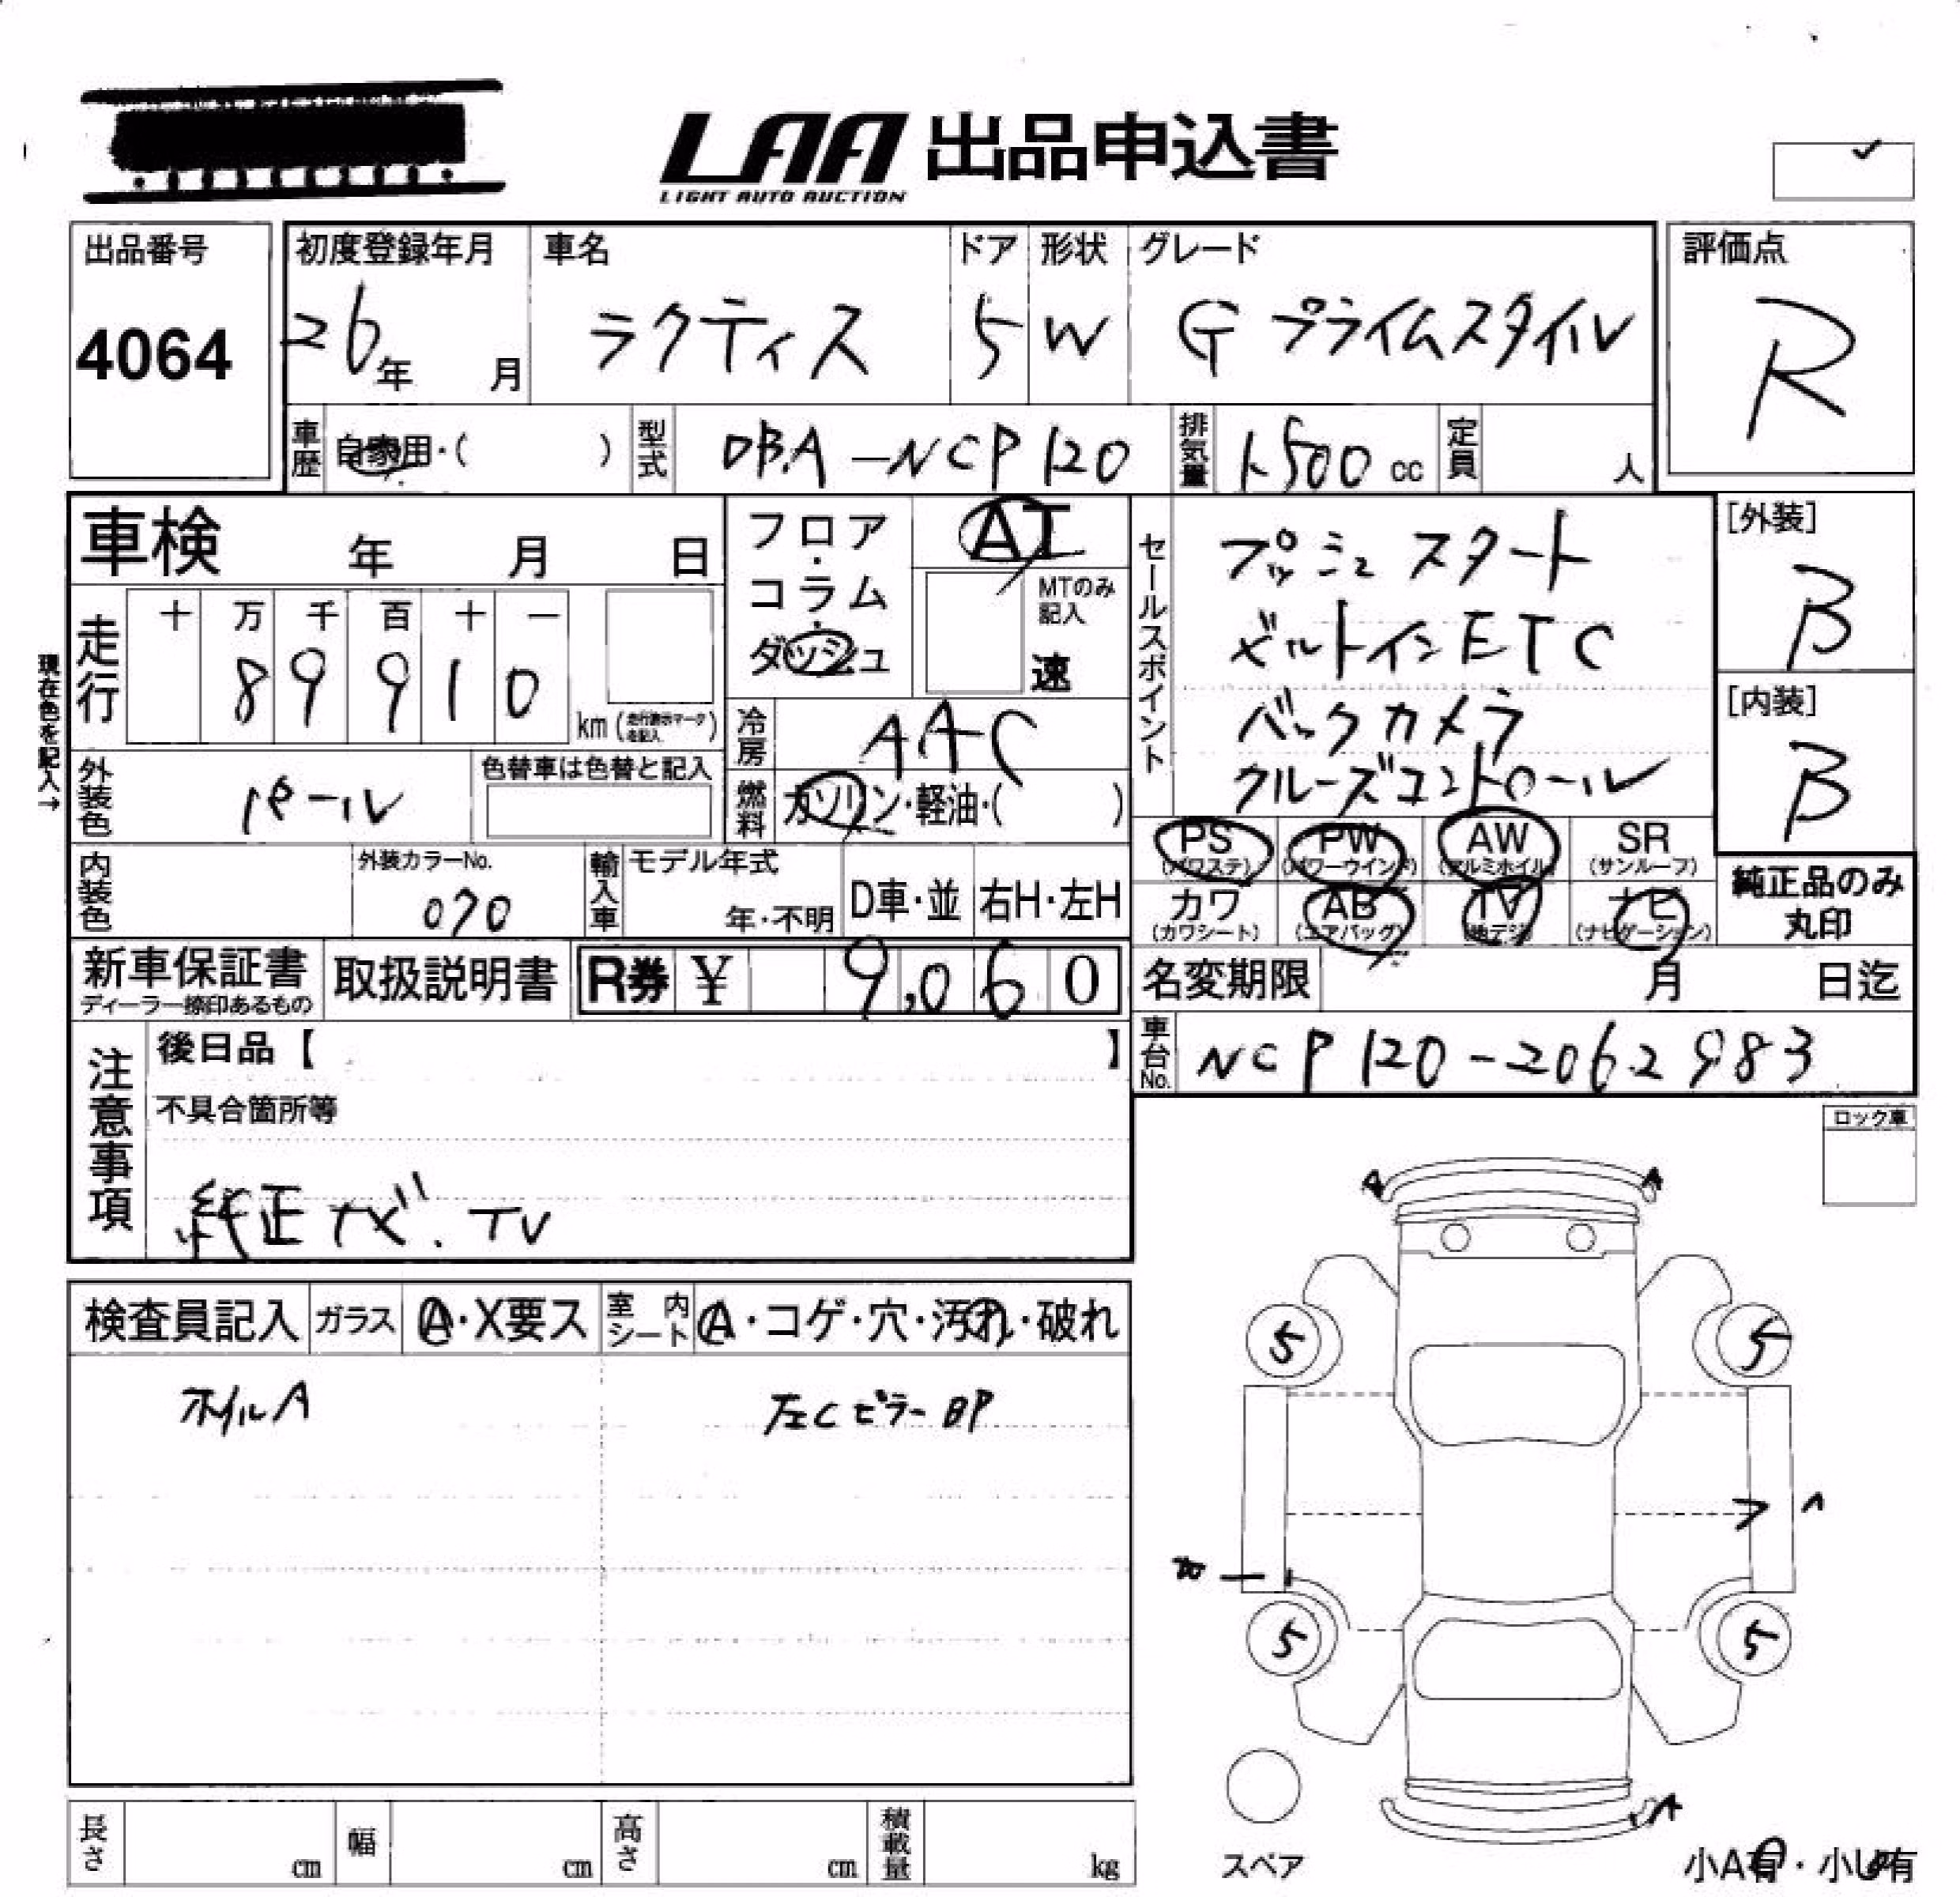 LAA 出品申込書
LIGHT AUTO AUCTION
出品番号
4064
初度登録年月
26年 月
車名
ラクティス
ドア
5
形状
W
グレード
G プライムスタイル
評価点
R
車歴 自家用・( )
型式 DBA-NCP120
排気量 1500 cc
定員 人
車検 年 月 日
フロア・コラム・ダッシュ
AT
MTのみ記入
速
セールスポイント
プッシュスタート
ビルトインETC
バックカメラ
クルーズコントロール
[外装]
B
[内装]
B
現在色を記入→
走行
十 万 千 百 十 一
8 9 9 1 0
km (走行表示マークを記入)
冷房 AAC
外装色 パール
色替車は色替と記入
燃料 ガソリン・軽油・( )
PS (パワステ)
PW (パワーウインド)
AW (アルミホイル)
SR (サンルーフ)
カワ (カワシート)
AB (エアバッグ)
TV (地デジ)
ナビ (ナビゲーション)
純正品のみ
丸印
内装色
外装カラーNo.
070
輸入車
モデル年式
年・不明
D車・並
右H・左H
新車保証書
ディーラー捺印あるもの
取扱説明書
R券 ¥ 9,060
名変期限 月 日迄
車台No. NCP120-2062983
注意事項
後日品【 】
不具合箇所等
純正ナビ.TV
ロック車
検査員記入
ガラス
A・X要ス
室内シート
A・コゲ・穴・汚れ・破れ
ホイルA
左Cピラー BP
A
A
5
5
5
5
A
スペア
小A有・小U有
長さ cm
幅 cm
高さ cm
積載量 kg